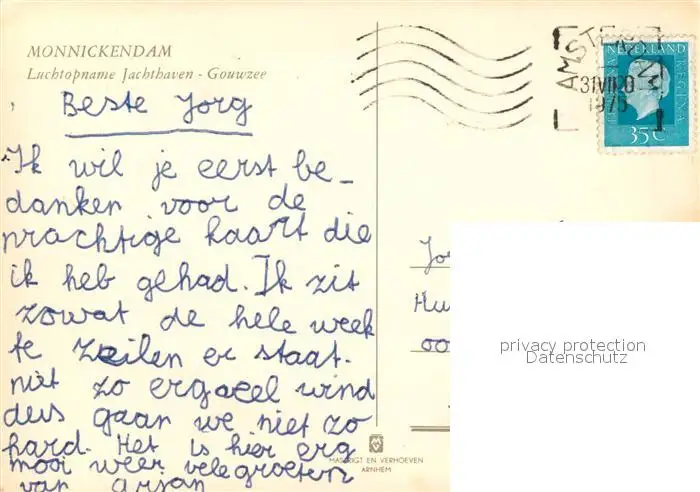 MONNICKENDAM
Luchtopname Jachthaven - Gouwzee
Beste Jorg
Ik wil je eerst be-
danken voor de
prachtige kaart die
ik heb gehad. Ik zit
zowat de hele week
te zeilen er staat
niet zo ergveel wind
dus gaan we niet zo
hard. Het is hier erg
mooi weer vele groeten
van Arjan
AMSTERDAM
31 VII 20
1975
NEDERLAND
REGINA
35c
Jo
Hu
oo
privacy protection
Datenschutz
EN VERHOEVEN
ARNHEM